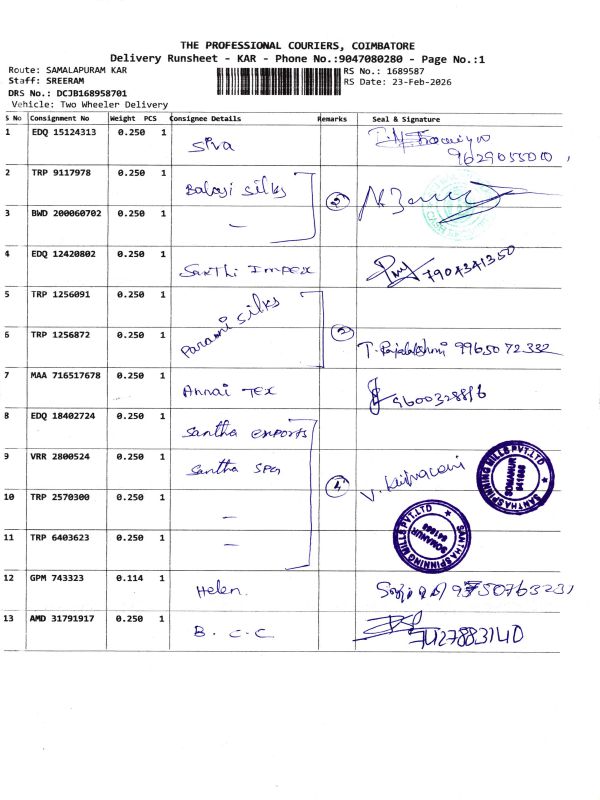 THE PROFESSIONAL COURIERS, COIMBATORE
Delivery Runsheet - KAR - Phone No.:9047080280 - Page No.:1
Route: SAMALAPURAM KAR
RS No.: 1689587
Staff: SREERAM
RS Date: 23-Feb-2026
DRS No.: DCJB168958701
Vehicle: Two Wheeler Delivery
S No Consignment No Weight PCS Consignee Details Remarks Seal & Signature
1 EDQ 15124313 0.250 1 Siva 9629055000
2 TRP 9117978 0.250 1 Balaji Silks
3 BWD 200060702 0.250 1 —
4 EDQ 12420802 0.250 1 Santhi Impex 7904341350
5 TRP 1256091 0.250 1 Parani Silks
6 TRP 1256872 0.250 1 2 T. Rajalakshmi 9965072332
7 MAA 716517678 0.250 1 Annai Tex 9600328816
8 EDQ 18402724 0.250 1 Santha exports
9 VRR 2800524 0.250 1 Santha SPG 4 V.
SANTHA SPINNING MILLS PVT.LTD
SOMANUR
641668
10 TRP 2570300 0.250 1 —
11 TRP 6403623 0.250 1 —
SANTHA SPINNING MILLS PVT.LTD
SOMANUR
641668
12 GPM 743323 0.114 1 Helen. 9750763231
13 AMD 31791917 0.250 1 B. C. C